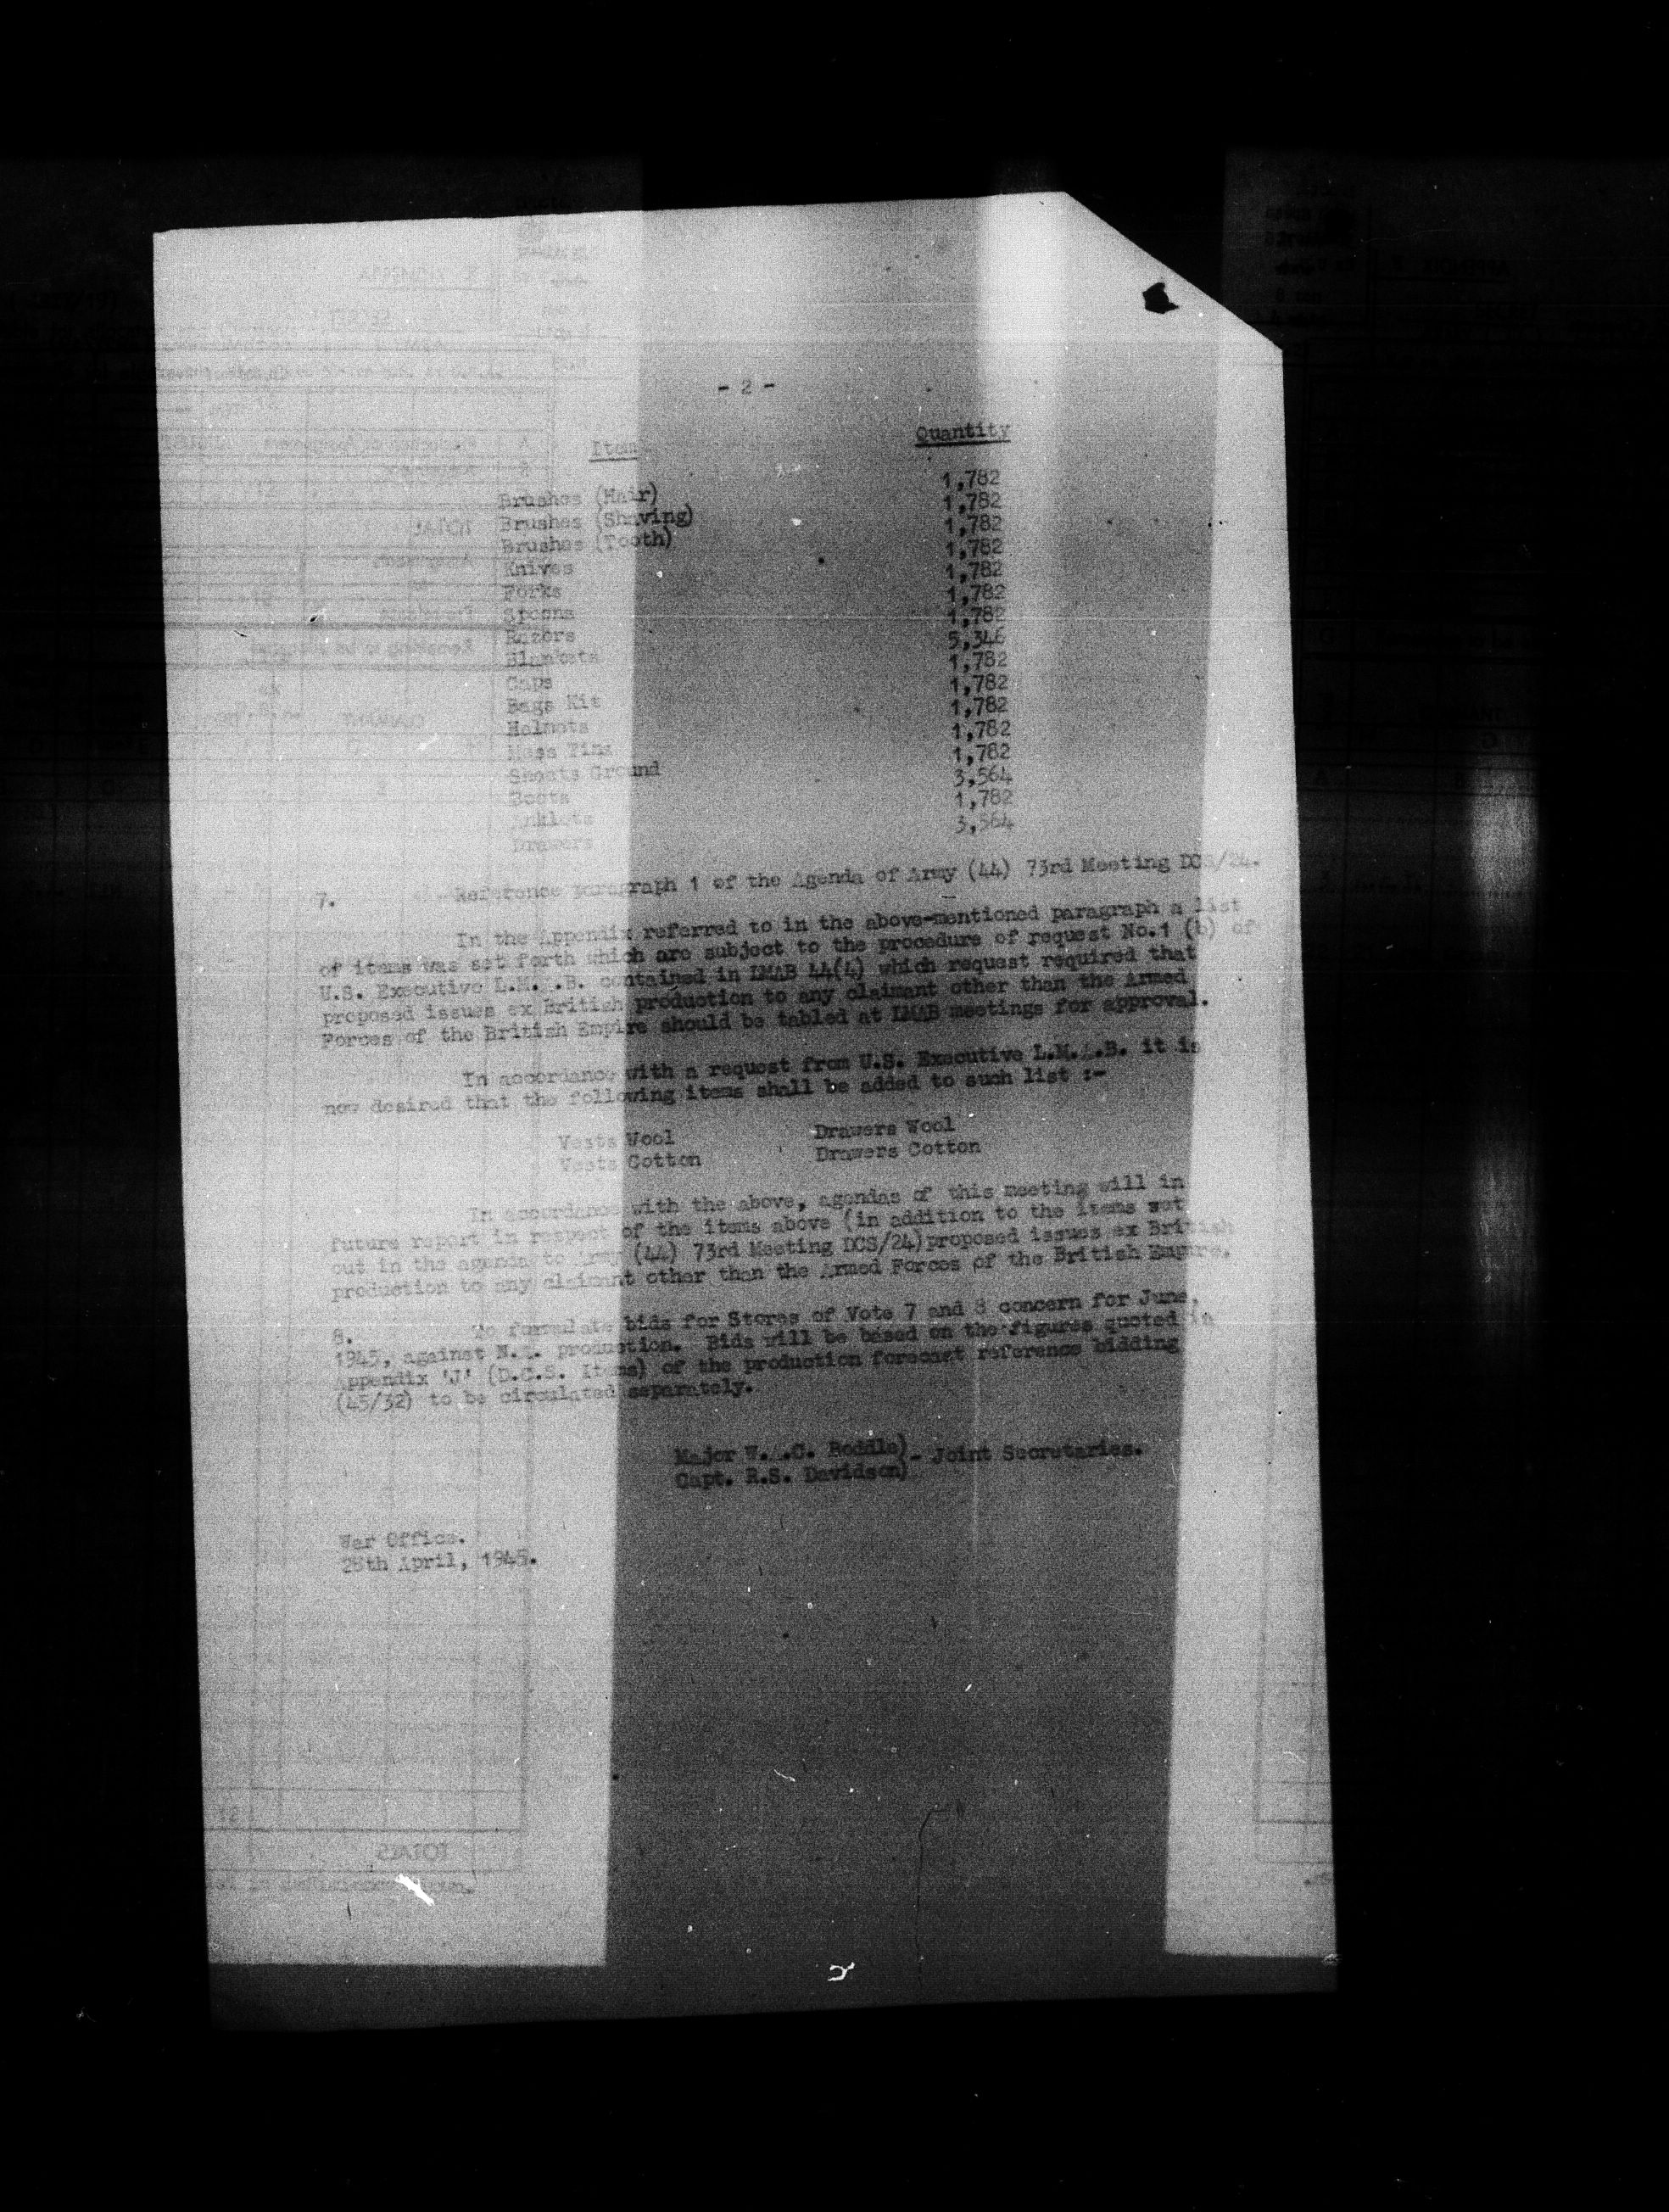 - 2 -
Item Quantity
Brushes (Hair) 1,782
Brushes (Shaving) 1,782
Brushes (Tooth) 1,782
Knives 1,782
Forks 1,782
Spoons 1,782
Razors 1,782
Blankets 5,346
Caps 1,782
Bags Kit 1,782
Helmets 1,782
Mess Tins 1,782
Sheets Ground 1,782
Boots 3,564
Anklets 1,782
Drawers 3,564
7. Reference paragraph 1 of the Agenda of Army (44) 73rd Meeting DCS/24.
In the Appendix referred to in the above-mentioned paragraph a list
of items was set forth which are subject to the procedure of request No.1 (b) of
U.S. Executive L.M.A.B. contained in LMAB 44(4) which request required that
proposed issues ex British production to any claimant other than the Armed
Forces of the British Empire should be tabled at LMAB meetings for approval.
In accordance with a request from U.S. Executive L.M.A.B. it is
now desired that the following items shall be added to such list :-
Vests Wool Drawers Wool
Vests Cotton Drawers Cotton
In accordance with the above, agendas of this meeting will in
future report in respect of the items above (in addition to the items set
out in the agenda to Army (44) 73rd Meeting DCS/24) proposed issues ex British
production to any claimant other than the Armed Forces of the British Empire.
8. To formulate bids for Stores of Vote 7 and 8 concern for June,
1945, against N.A. production. Bids will be based on the figures quoted in
Appendix 'J' (D.C.S. Items) of the production forecast reference bidding
(45/32) to be circulated separately.
Major W.A.C. Boddle)
Capt. R.S. Davidson) - Joint Secretaries.
War Office.
April, 1945.
TOTALS